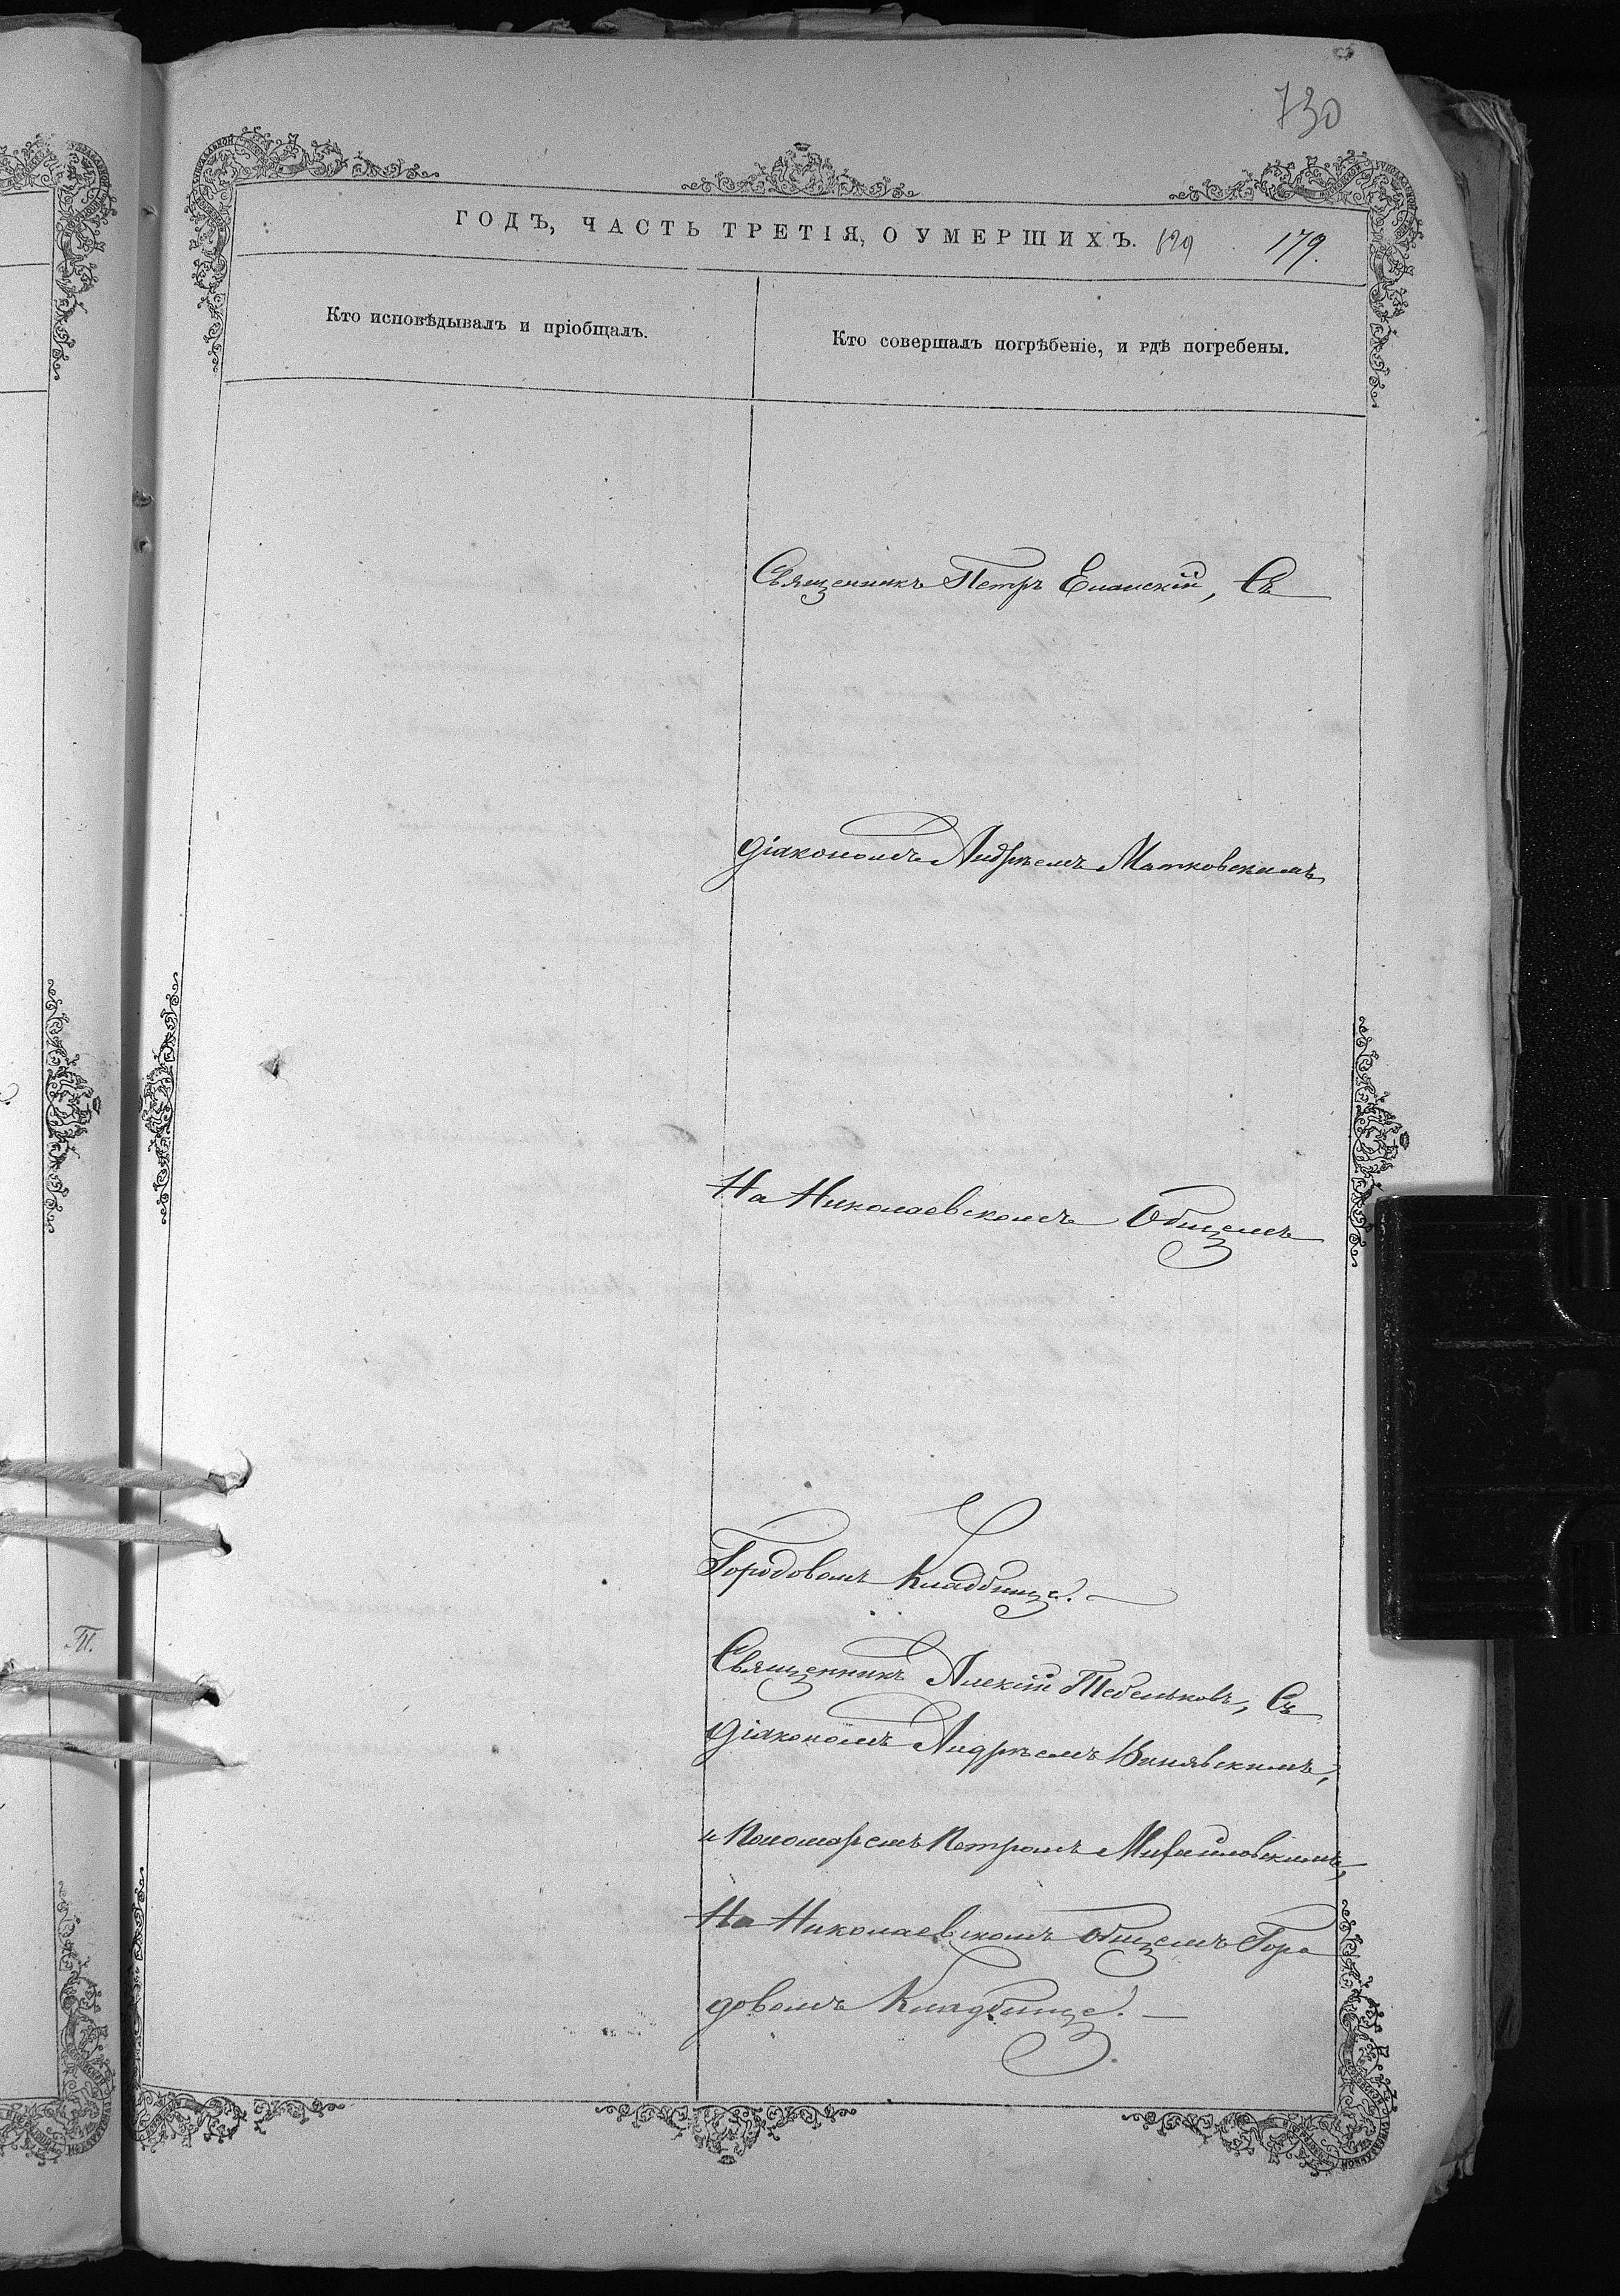 730
ГОДЪ, ЧАСТЬ ТРЕТІЯ, О УМЕРШИХЪ. 629 179.
Кто исповѣдывалъ и пріобщалъ.
Кто совершалъ погрѣбеніе, и гдѣ погребены.
Священникъ Петръ Еланскій, Съ
діакономъ Андрѣемъ Матковскимъ,
На Николаевскомъ Общемъ
Городовомъ Кладбище.
Священникъ Алексій Тебеньковъ, Съ
діакономъ Андрѣемъ
и Пономаремъ Петромъ Михайловскимъ,
На Николаевскомъ общемъ Горо
довомъ Кладбище.
П.